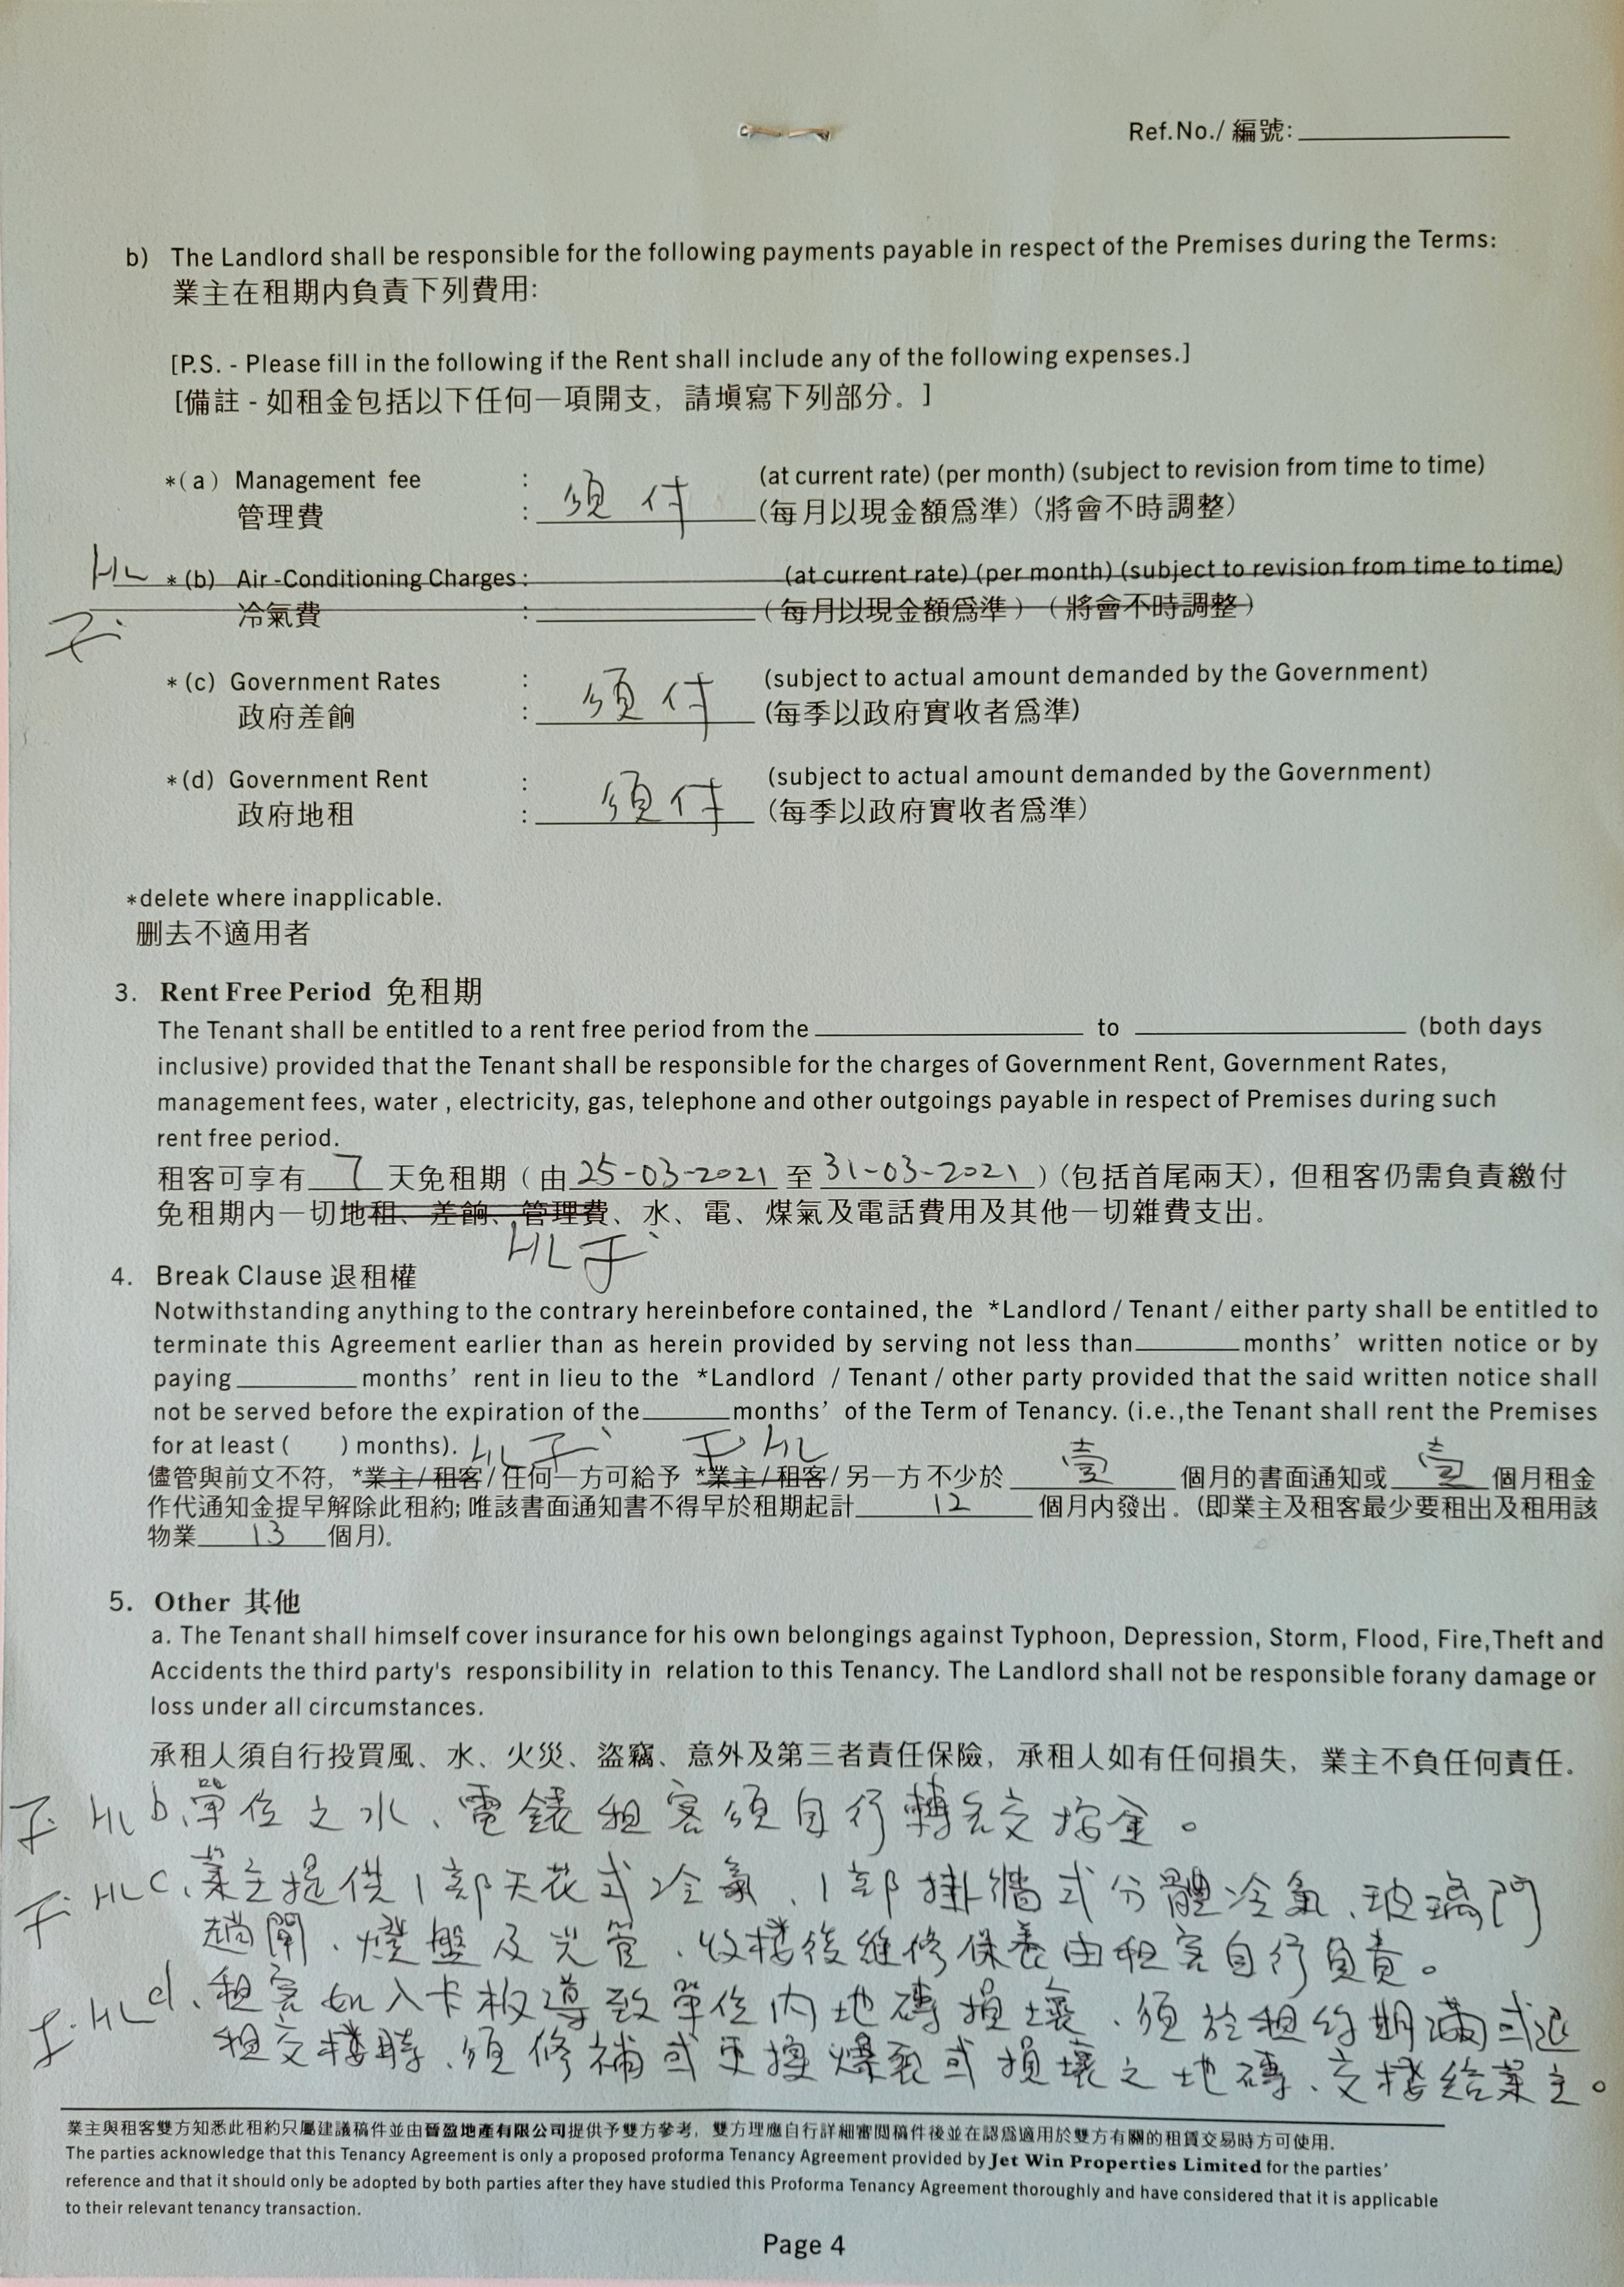 Ref.No./ 編號:
b) The Landlord shall be responsible for the following payments payable in respect of the Premises during the Terms:
業主在租期內負責下列費用:
[P.S. - Please fill in the following if the Rent shall include any of the following expenses.]
[備註 - 如租金包括以下任何一項開支，請填寫下列部分。]
*(a) Management fee : (at current rate) (per month) (subject to revision from time to time)
管理費 : 須付 (每月以現金額爲準) (將會不時調整)
HL *(b) Air -Conditioning Charges : (at current rate) (per month) (subject to revision from time to time)
冷氣費 : (每月以現金額爲準) (將會不時調整)
*(c) Government Rates : (subject to actual amount demanded by the Government)
政府差餉 : 須付 (每季以政府實收者爲準)
*(d) Government Rent : (subject to actual amount demanded by the Government)
政府地租 : 須付 (每季以政府實收者爲準)
*delete where inapplicable.
刪去不適用者
3. Rent Free Period 免租期
The Tenant shall be entitled to a rent free period from the to (both days
inclusive) provided that the Tenant shall be responsible for the charges of Government Rent, Government Rates,
management fees, water , electricity, gas, telephone and other outgoings payable in respect of Premises during such
rent free period.
租客可享有 7 天免租期 ( 由 25-03-2021 至 31-03-2021 ) (包括首尾兩天)，但租客仍需負責繳付
免租期內一切地租、差餉、管理費、水、電、煤氣及電話費用及其他一切雜費支出。
HL
4. Break Clause 退租權
Notwithstanding anything to the contrary hereinbefore contained, the *Landlord / Tenant / either party shall be entitled to
terminate this Agreement earlier than as herein provided by serving not less than months' written notice or by
paying months' rent in lieu to the *Landlord / Tenant / other party provided that the said written notice shall
not be served before the expiration of the months' of the Term of Tenancy. (i.e.,the Tenant shall rent the Premises
for at least ( ) months). HL HL
儘管與前文不符，*業主/租客/任何一方可給予 *業主/租客/另一方不少於 壹 個月的書面通知或 壹 個月租金
作代通知金提早解除此租約; 唯該書面通知書不得早於租期起計 12 個月內發出。(即業主及租客最少要租出及租用該
物業 13 個月)。
5. Other 其他
a. The Tenant shall himself cover insurance for his own belongings against Typhoon, Depression, Storm, Flood, Fire,Theft and
Accidents the third party's responsibility in relation to this Tenancy. The Landlord shall not be responsible forany damage or
loss under all circumstances.
承租人須自行投買風、水、火災、盜竊、意外及第三者責任保險，承租人如有任何損失，業主不負任何責任.
HL b、單位之水、電錶租客須自行轉名交按金。
HL c、業主提供1部天花式冷氣、1部掛牆式分體冷氣、玻璃門
趟閘、燈盤及光管、收楼後維修保養由租客自行負責。
HL d、租客如入卡板導致單位內地磚損壞、須於租約期滿或退
租交楼時、須修補或更換爆裂或損壞之地磚、交楼給業主。
業主與租客雙方知悉此租約只屬建議稿件並由晉盈地產有限公司提供予雙方參考，雙方理應自行詳細審閱稿件後並在認爲適用於雙方有關的租賃交易時方可使用.
The parties acknowledge that this Tenancy Agreement is only a proposed proforma Tenancy Agreement provided by Jet Win Properties Limited for the parties'
reference and that it should only be adopted by both parties after they have studied this Proforma Tenancy Agreement thoroughly and have considered that it is applicable
to their relevant tenancy transaction.
Page 4